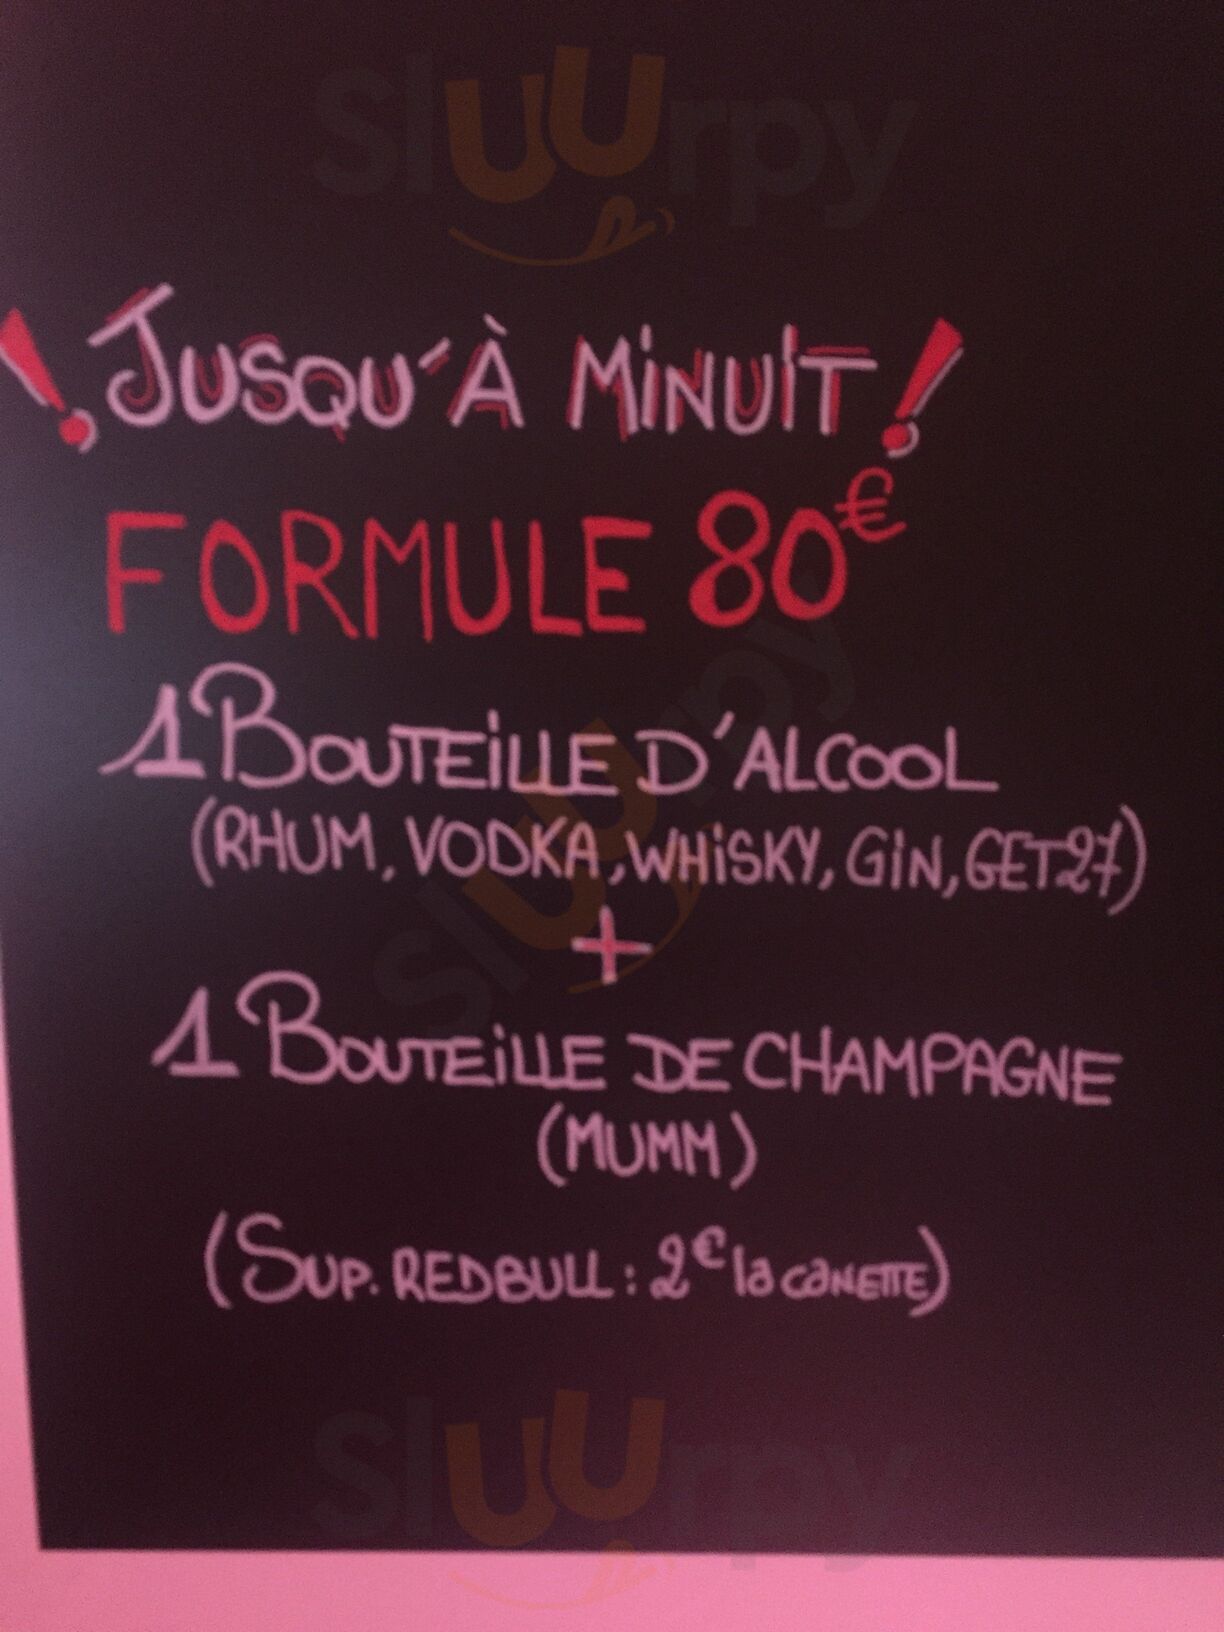 Sluurpy
! JUSQU'À MINUIT !
FORMULE 80€
1 BOUTEILLE D'ALCOOL
(RHUM, VODKA, WHISKY, GIN, GET27)
+
1 BOUTEILLE DE CHAMPAGNE
(MUMM)
(SUP. REDBULL : 2€ la caNETTE)
Sluurpy
Sluurpy